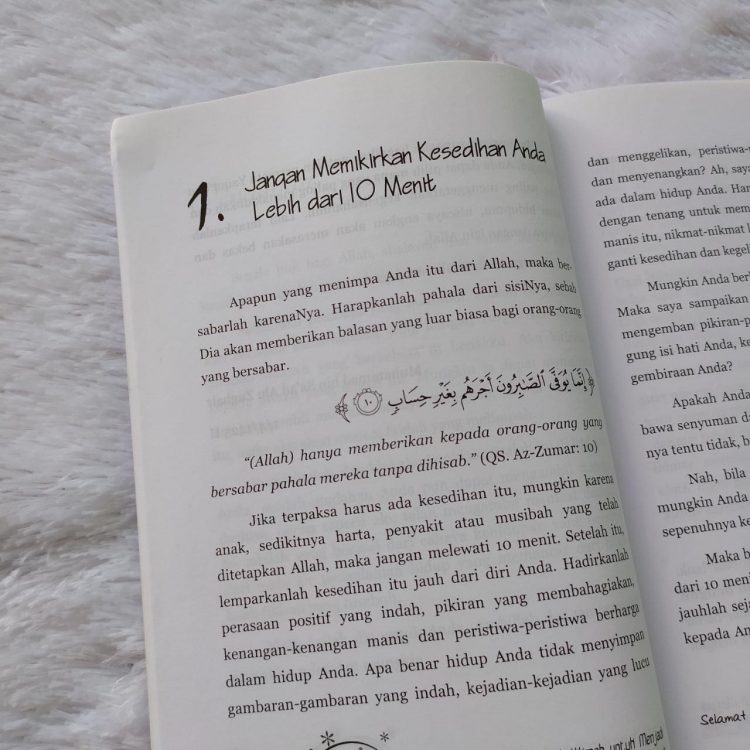 1.
Jangan Memikirkan Kesedihan Anda
Lebih dari 10 Menit
Apapun yang menimpa Anda itu dari Allah, maka ber-
sabarlah karenaNya. Harapkanlah pahala dari sisiNya, sebab
Dia akan memberikan balasan yang luar biasa bagi orang-orang
yang bersabar.
﴿ إِنَّمَا يُوَفَّى ٱلصَّـٰبِرُونَ أَجْرَهُم بِغَيْرِ حِسَابٍ ١٠ ﴾
“(Allah) hanya memberikan kepada orang-orang yang
bersabar pahala mereka tanpa dihisab.” (QS. Az-Zumar: 10)
Jika terpaksa harus ada kesedihan itu, mungkin karena
anak, sedikitnya harta, penyakit atau musibah yang telah
ditetapkan Allah, maka jangan melewati 10 menit. Setelah itu,
lemparkanlah kesedihan itu jauh dari diri Anda. Hadirkanlah
perasaan positif yang indah, pikiran yang membahagiakan,
kenangan-kenangan manis dan peristiwa-peristiwa berharga
dalam hidup Anda. Apa benar hidup Anda tidak menyimpan
gambaran-gambaran yang indah, kejadian-kejadian yang lucu
untuk Menjadi
dan menggelikan, peristiwa-
dan menyenangkan? Ah, saya
ada dalam hidup Anda. Har
dengan tenang untuk mem
manis itu, nikmat-nikmat l
ganti kesedihan dan kegel
Mungkin Anda berl
Maka saya sampaikan
mengemban pikiran-p
gung isi hati Anda, ke
gembiraan Anda?
Apakah Anda
bawa senyuman d
nya tentu tidak, b
Nah, bila
mungkin Anda
sepenuhnya ke
Maka b
dari 10 meni
jauhlah sej
kepada An
Selamat